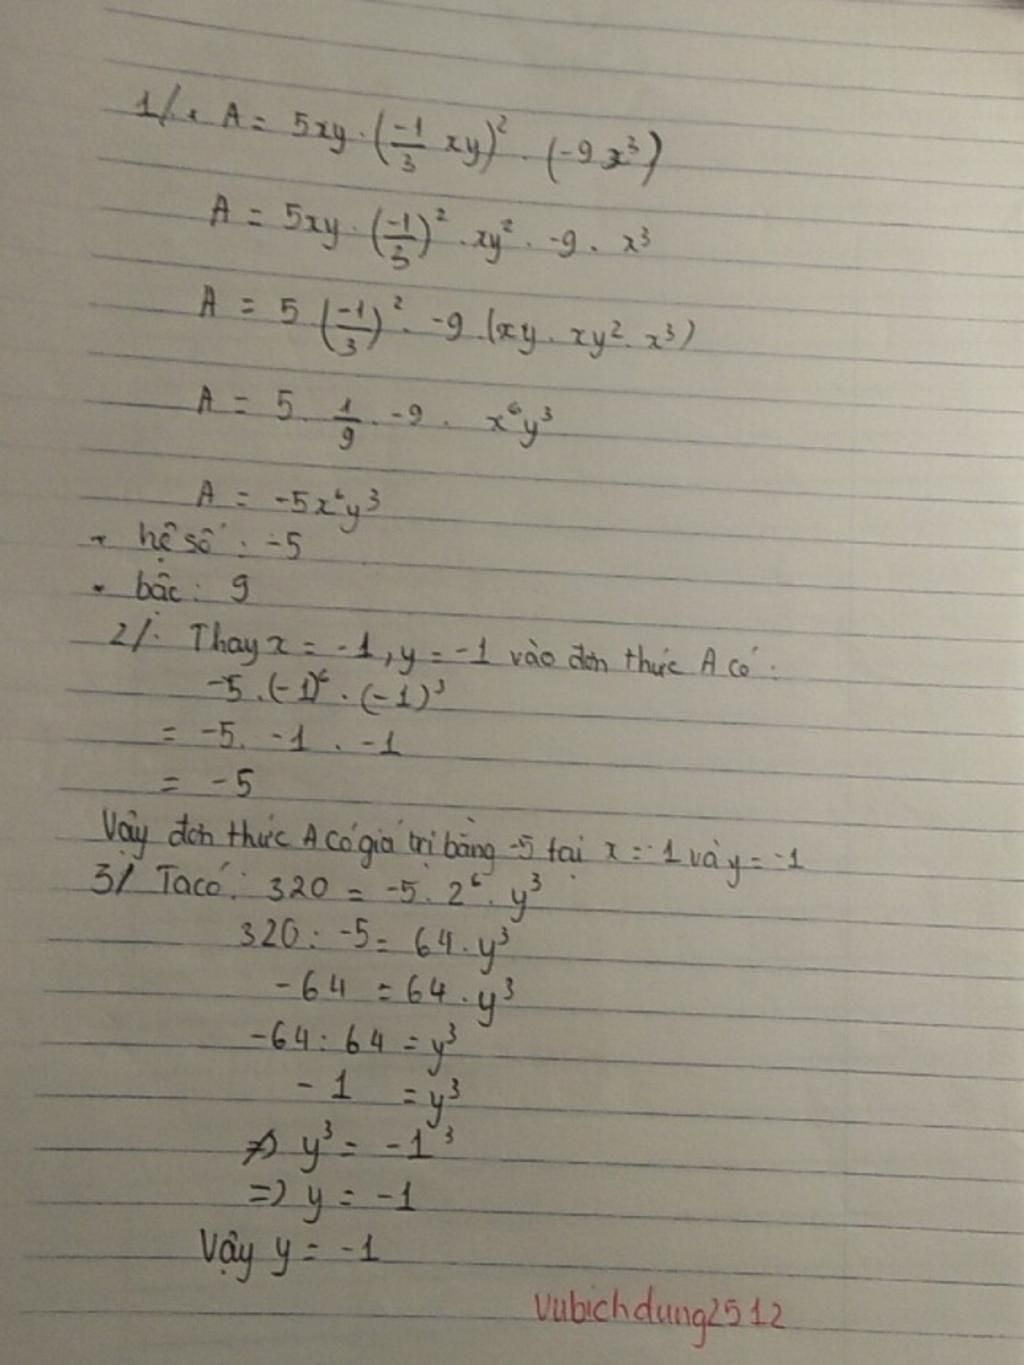 1/. A = 5xy . (-1/3 xy)² . (-9x³)
A = 5xy . (-1/3)² . xy² . -9 . x³
A = 5 (-1/3)² . -9 . (xy . xy² . x³)
A = 5 . 1/9 . -9 . x⁶y³
A = -5x⁶y³
- hệ số : -5
- bậc : 9
2/. Thay x = -1, y = -1 vào đơn thức A có :
-5 . (-1)⁶ . (-1)³
= -5 . -1 . -1
= -5
Vậy đơn thức A có giá trị bằng -5 tại x = -1 và y = -1
3/ Ta có : 320 = -5 . 2⁶ . y³
320 : -5 = 64 . y³
-64 = 64 . y³
-64 : 64 = y³
-1 = y³
=> y³ = -1³
=> y = -1
Vậy y = -1
vubichdung2512